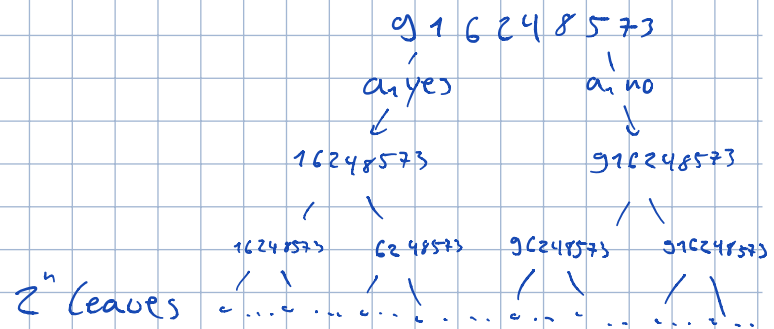 9 1 6 2 4 8 5 7 3
a₁ yes a₁ no
16248573 916248573
16248573 6248573 96248573 916248573
2ⁿ leaves . ... . ... . ... . ... . ... . .. . ... . ..